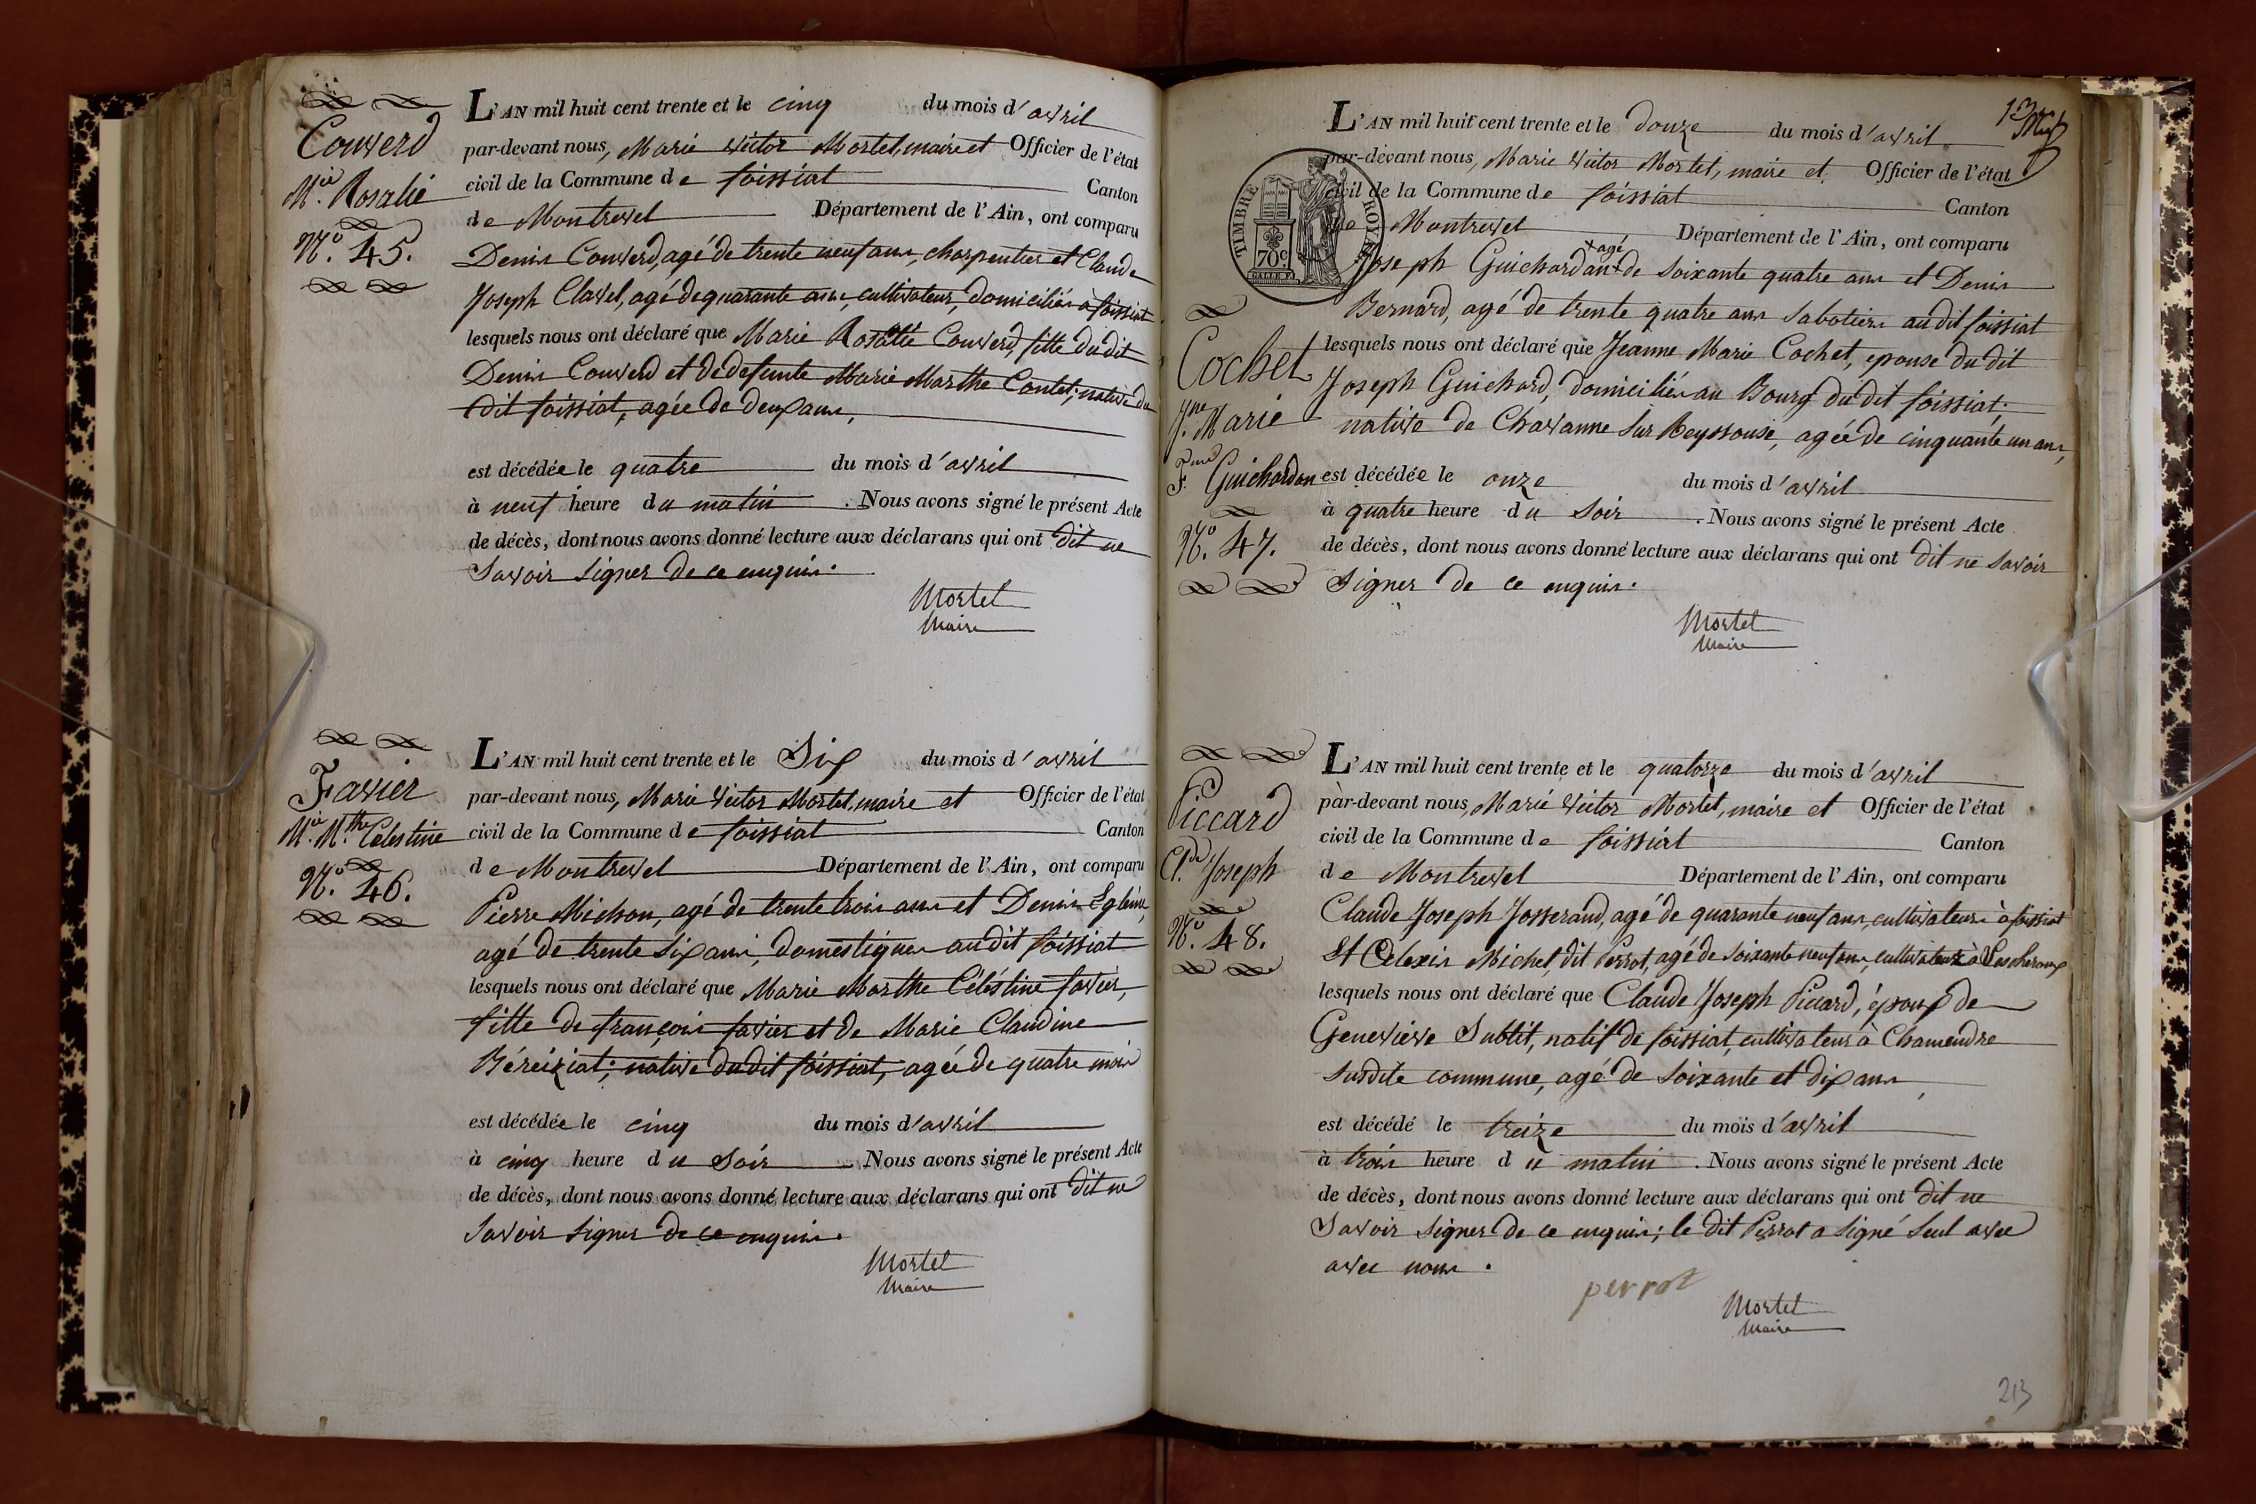 Couverd
M.ie Rosalie
N.o 45.
L'AN mil huit cent trente et le cinq du mois d'avril
par-devant nous, Marie Victor Mortel, maire et Officier de l'état
civil de la Commune de foissiat Canton
de Montrevel Département de l'Ain, ont comparu
Denis Couverd, agé de trente neuf ans, charpentier et Claude
Joseph Clavel, agé de quarante ans, cultivateur, domiciliés à foissiat
lesquels nous ont déclaré que Marie Rosalie Couverd, fille du dit
Denis Couverd et de defunte Marie Marthe Contet; native du
dit foissiat, agée de deux ans,
est décédée le quatre du mois d'avril
à neuf heure du matin . Nous avons signé le présent Acte
de décès, dont nous avons donné lecture aux déclarans qui ont dit ne
Savoir signer de ce enquis.
Mortel
Maire
Favier
M.ie M.the Célestine
N.o 46.
L'AN mil huit cent trente et le Six du mois d'avril
par-devant nous, Marie Victor Mortel, maire et Officier de l'état
civil de la Commune de foissiat Canton
de Montrevel Département de l'Ain, ont comparu
Pierre Michon, agé de trente trois ans et Denis
agé de trente six ans, domestiques au dit foissiat
lesquels nous ont déclaré que Marie Marthe Céléstine favier,
fille de françois favier et de Marie Claudine
Béreiziat; native du dit foissiat, agée de quatre mois
est décédée le cinq du mois d'avril
à cinq heure du Soir Nous avons signé le présent Acte
de décès, dont nous avons donné lecture aux déclarans qui ont dit ne
Savoir signer de ce enquis.
Mortel
Maire
13
TIMBRE ROYAL
70c
Cochet
J.ne Marie
F. Guichardon
N.o 47.
L'AN mil huit cent trente et le douze du mois d'avril
par-devant nous, Marie Victor Mortel, maire et Officier de l'état
civil de la Commune de foissiat Canton
de Montrevel Département de l'Ain, ont comparu
+ agé
Joseph Guichard an + de Soixante quatre ans et Denis
Bernard, agé de trente quatre ans Sabotiers au dit foissiat
lesquels nous ont déclaré que Jeanne Marie Cochet, epouse du dit
Joseph Guichard, domiciliés au Bourg du dit foissiat;
native de Chavanne Sur Reyssouse, agée de cinquante un ans,
est décédée le onze du mois d'avril
à quatre heure du Soir . Nous avons signé le présent Acte
de décès, dont nous avons donné lecture aux déclarans qui ont dit ne savoir
Signer de ce enquis.
Mortel
Maire
Piccard
Cl.de Joseph
N.o 48.
L'AN mil huit cent trente et le quatorze du mois d'avril
par-devant nous, Marie Victor Mortel, maire et Officier de l'état
civil de la Commune de foissiat Canton
de Montrevel Département de l'Ain, ont comparu
Claude Joseph Josserand, agé de quarante neuf ans, cultivateur à foissiat
Et Michel, dit Perrot, agé de soixante neuf ans, cultivateur à Lescheroux
lesquels nous ont déclaré que Claude Joseph Piccard, époux de
Geneviève Subtit, natif de foissiat, cultivateur à Chamendre
Susdite commune, agé de Soixante et dix ans,
est décédé le treize du mois d'avril
à trois heure du matin . Nous avons signé le présent Acte
de décès, dont nous avons donné lecture aux déclarans qui ont dit ne
Savoir signer de ce enquis; le dit Perrot a signé seul avec
avec nous.
perrot
Mortel
Maire
213